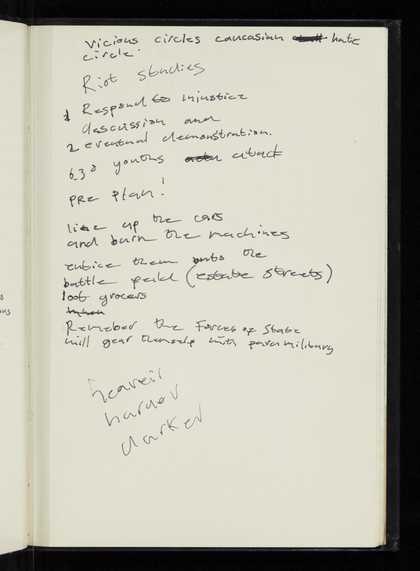 Vicious circles caucasian hate
circle.
Riot studies
1 Respond to injustice
discussion and
2 eventual demonstration.
6.30 youths attack
pre plan!
line up the cars
and burn the machines
entice them onto the
battle feild (estate streets)
loot grocers
Remeber the Forces of State
will gear themselp with paramilitary
heaveir
harder
darker